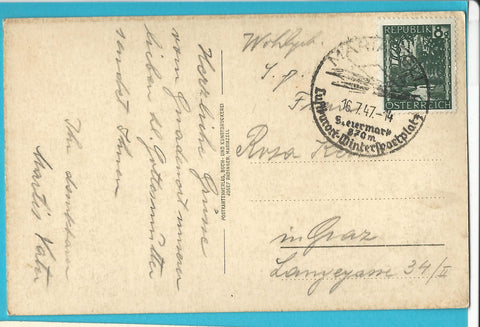 Herzliche Grüsse
vom Gnadenort unserer
lieben hl. Gottesmutter
sendet Ihnen
Ihr dankbarer
Martin Vater
POSTKARTENVERLAG, BUCH- UND KUNSTDRUCKEREI
JOSEF RADINGER, MARIAZELL
Wohlgeb.
Rosa
in Graz
Langegasse 34/II
REPUBLIK 8g
ÖSTERREICH
MARIAZELL
16.7.47.-14
Steiermark
870m
Luftkurort-Wintersportplatz